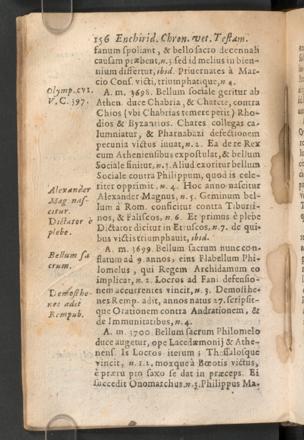 156 Enchirid. Chron. vet. Testam.
fanum spoliant, & bello sacro decennali
causam præbent, n. 3. sed id melius in bien-
nium differtur, ibid. Privernates à Mar-
cio Cons. victi, triumphatique, n. 4.
Olymp. CVI.
V. C. 397.
A. m. 3698. Bellum sociale geritur ab
Athen. duce Chabria, & Charete, contra
Chios (ubi Chabrias temere perit) Rho-
dios & Byzantios. Chares collegas ca-
lumniatur, & Pharnabazi defectionem
pecunia victus juvat, n. 2. Ea de re Rex
cum Atheniensibus expostulat, & bellum
Sociale finitur, n. 3. Aliud exoritur bellum
Sociale contra Philippum, quod is cele-
riter opprimit, n. 4. Hoc anno nascitur
Alexander
Mag. nas-
citur.
Alexander Magnus, n. 5. Geminum bel-
lum à Rom. conficitur contra Tiburti-
nos, & Faliscos, n. 6. Et primus è plebe
Dictator è
plebe.
Dictator dicitur in Etruscos, n. 7. de qui-
bus victis triumphavit, ibid.
Bellum sa-
crum.
A. m. 3699. Bellum sacrum nunc con-
flatum ad 9 annos, ejus flabellum Phi-
lomelus, qui Regem Archidamum eo
implicat, n. 1. Locros ad Fani defensio-
nem accurrentes vincit, n. 3. Demosthe-
Demosthe-
nes adit
Rempub.
nes Remp. adit, annos natus 27. scripsit-
que Orationem contra Andrationem, &
de Immunitatibus, n. 4.
A. m. 3700. Bellum sacrum Philomelo
duce augetur, ope Lacedæmonij & Athe-
nens. Is Locros iterum & Thessalosque
vincit, n. 1. 2. mox què à Bœotis victus,
è præruptro saxo se dat in præceps. Ei
succedit Onomarchus, n. 3. Philippus Ma-